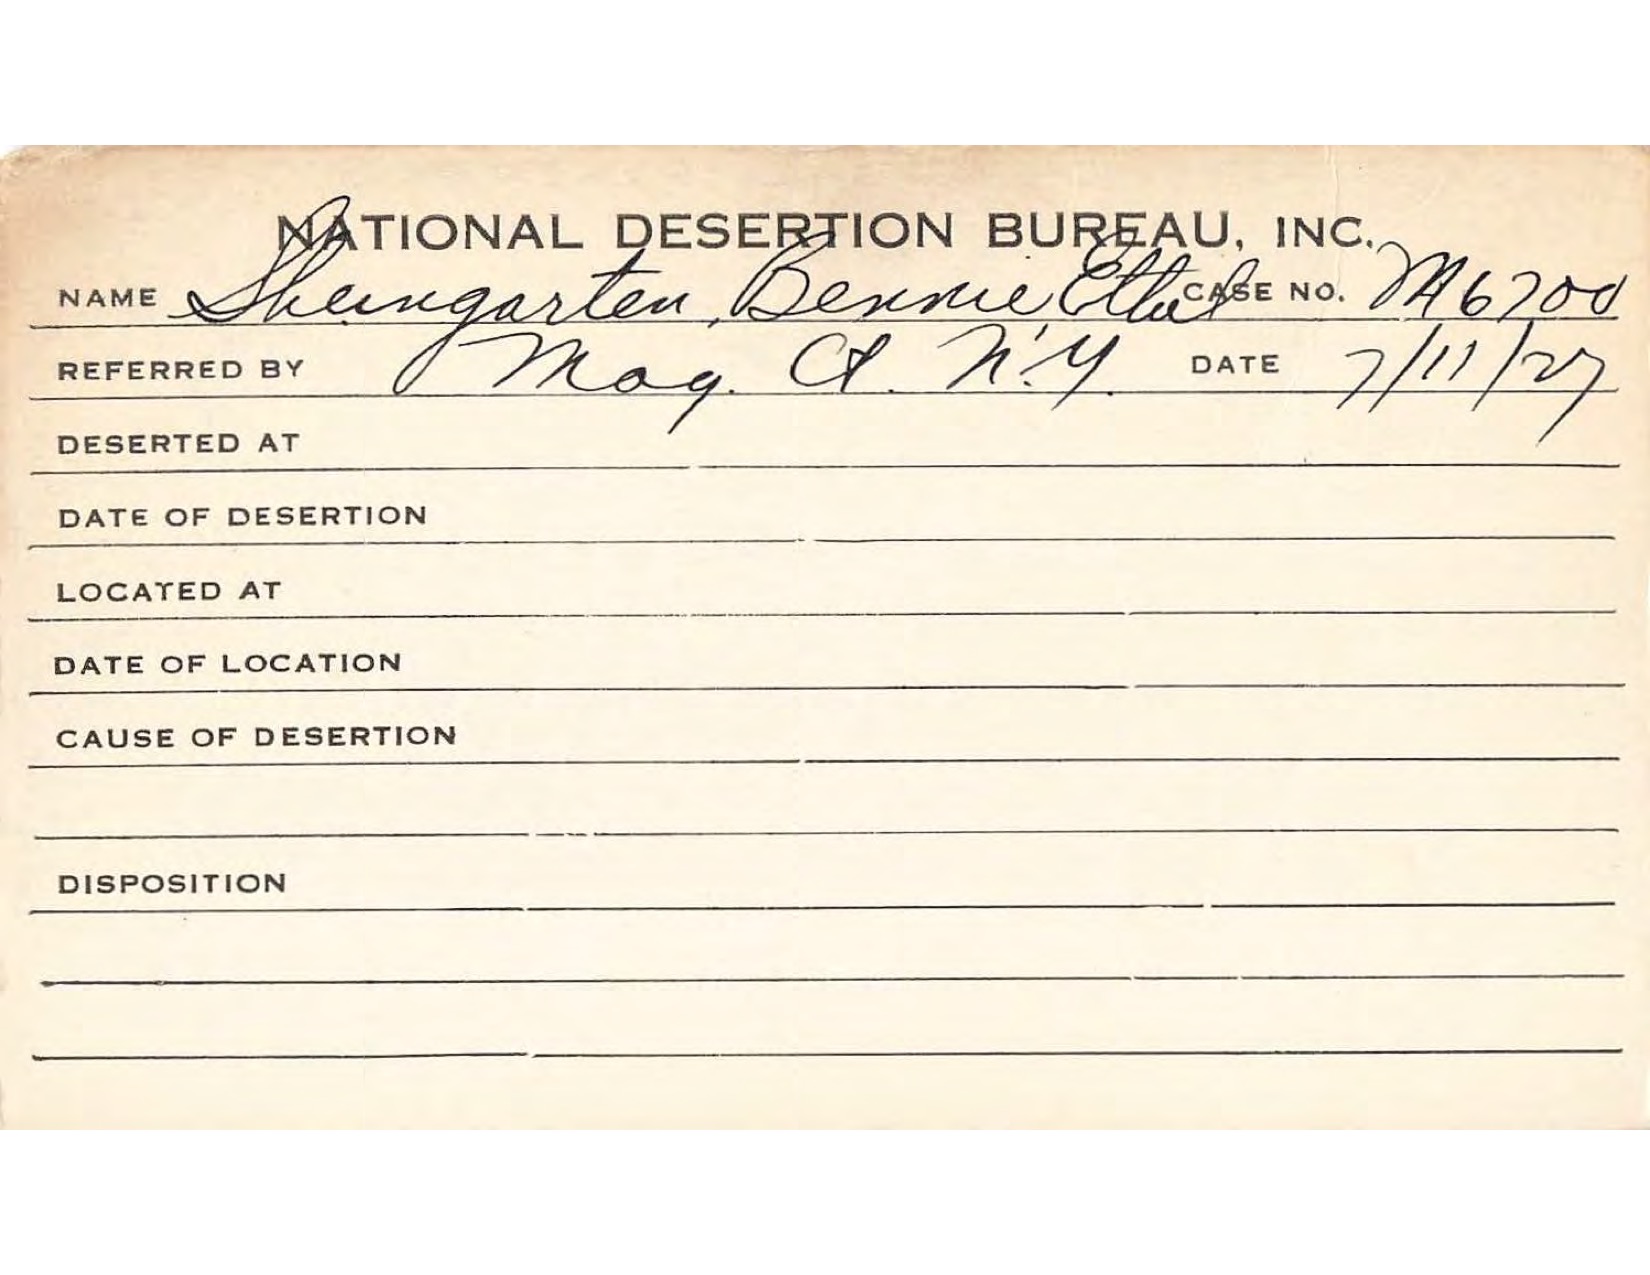 NATIONAL DESERTION BUREAU, INC.
NAME Sheingarten, Bennie, Ethel CASE NO. M6700
REFERRED BY Mag. Ct. N.Y. DATE 7/11/27
DESERTED AT
DATE OF DESERTION
LOCATED AT
DATE OF LOCATION
CAUSE OF DESERTION
DISPOSITION